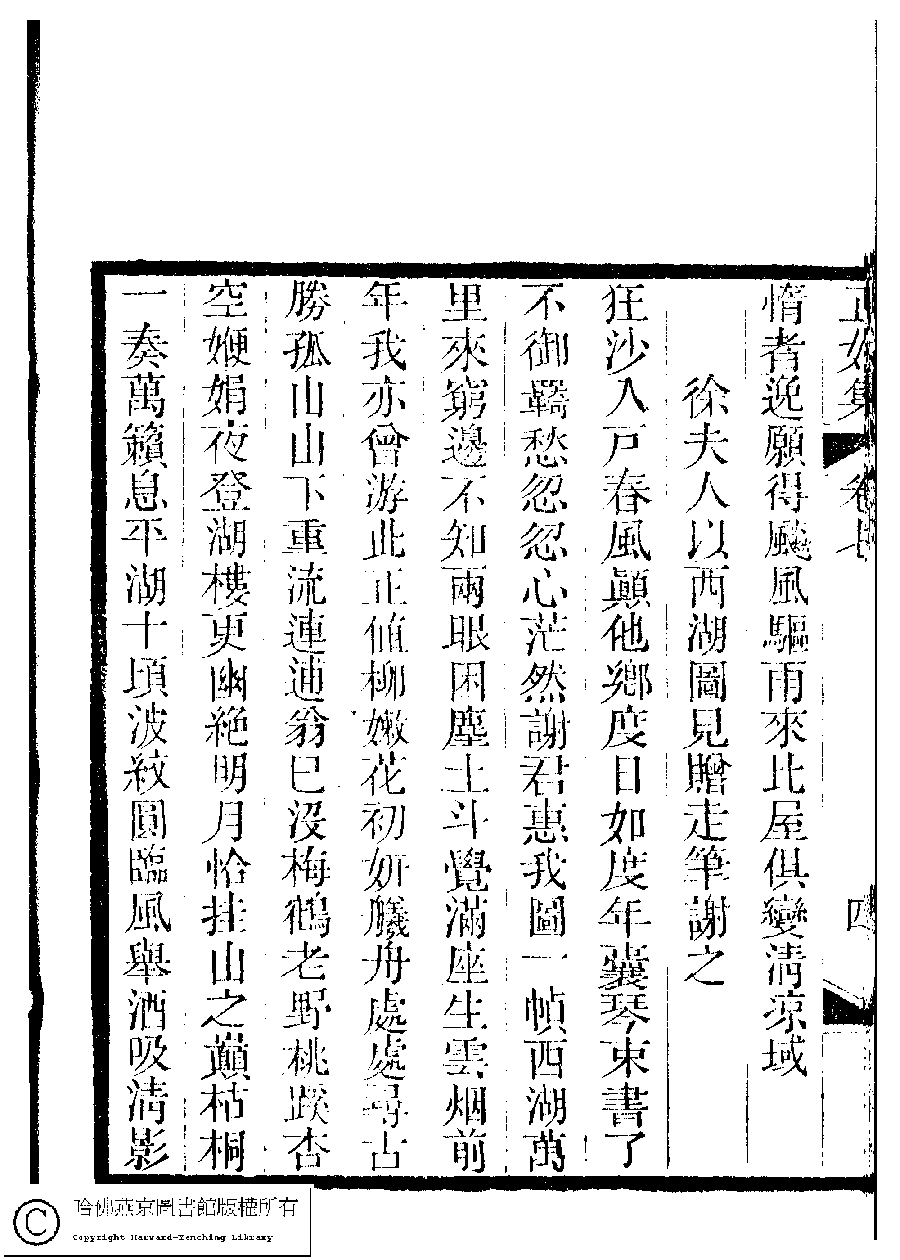 正始集 卷七 四
惰者迎願得颷風驅雨來比屋俱變清涼域
徐夫人以西湖圖見贈走筆謝之
狂沙入戸春風顚他鄉度日如度年囊琴束書了
不御羈愁忽忽心茫然謝君惠我圖一幀西湖萬
里來窮邊不知兩眼困塵土斗覺滿座生雲烟前
年我亦曾游此正値柳嫩花初妍艤舟處處尋古
勝孤山山下重流連逋翁已沒梅鶴老野桃踆杏
空㛹娟夜登湖樓更幽絕明月恰挂山之巔枯桐
一奏萬籟息平湖十頃波紋圓臨風舉酒吸淸影
哈佛燕京圖書館版權所有
Copyright Harvard-Yenching Library